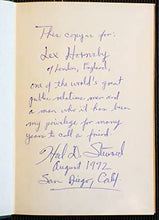 This copy is for:
Lex Hornsby
of London, England,
one of the world's great
public relations men and
a man who it has been
my privilege for many
years to call a friend
Hal D. Steward
August 1972
San Diego, Calif.